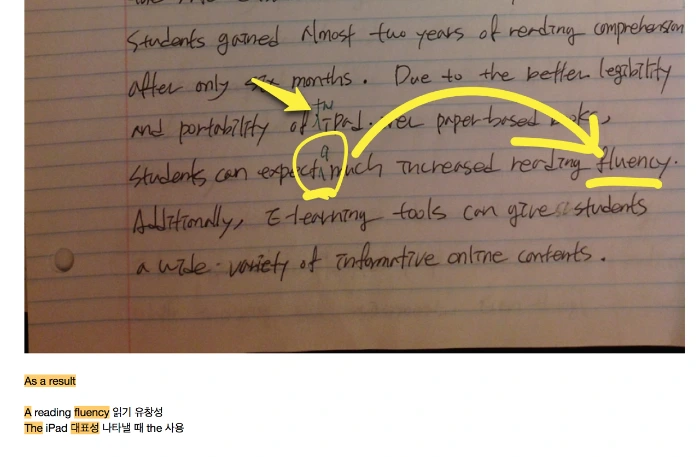 Students gained Almost two years of reading comprehension
after only six months. Due to the better legibility
the
and portability of iPad over paper-based books,
a
students can expect much increased reading fluency.
Additionally, E-learning tools can give students
a wide variety of informative online contents.
As a result
A reading fluency 읽기 유창성
The iPad 대표성 나타낼 때 the 사용